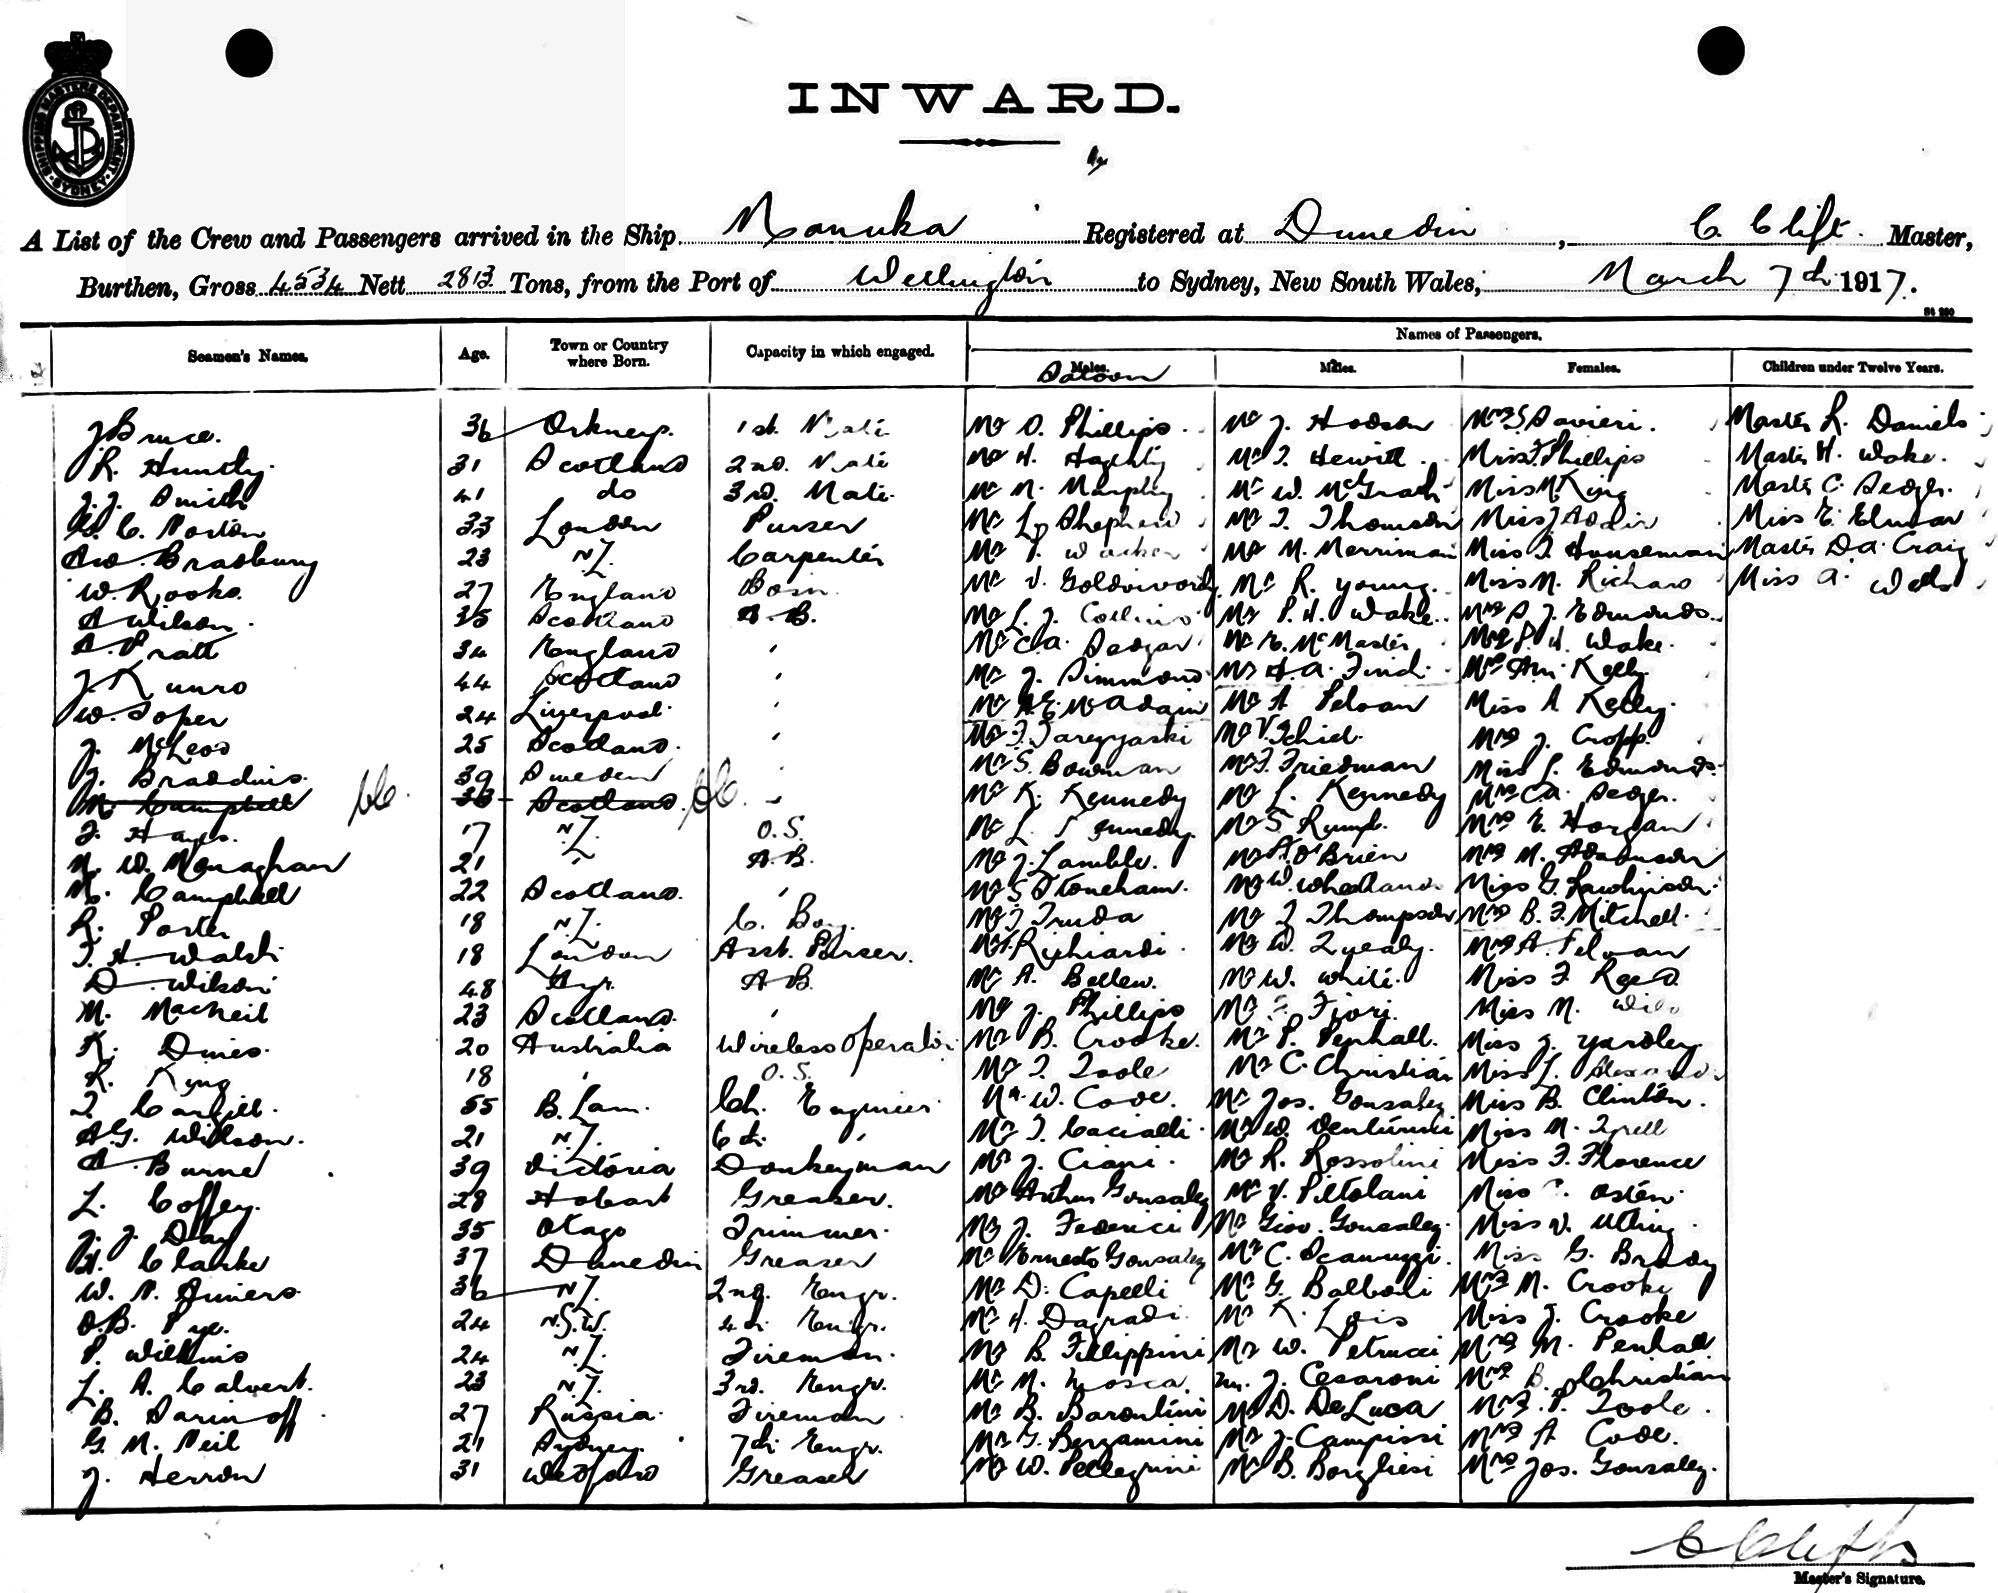 SHIPPING MASTERS DEPARTMENT
SYDNEY
INWARD.
A List of the Crew and Passengers arrived in the Ship Manuka Registered at Dunedin, C. Clift. Master,
Burthen, Gross 4534 Nett 2813 Tons, from the Port of Wellington to Sydney, New South Wales, March 7th 1917.
Names of Passengers.
Seamen's Names. Age. Town or Country where Born. Capacity in which engaged. Males. Saloon Males. Females. Children under Twelve Years.
J Bruce. 36 Orkneys. 1st. Mate Mr O. Phillips. Mr J. Hodson Mrs S Davieri. Master R. Daniels
R. Huntly. 31 Scotland 2nd. Mate Mr H. Mr T. Hewitt. Miss F. Phillips Master H. Wake.
J. J. Smith 41 do 3rd. Mate Mr M. Murphy Mr W. McGrath Miss M. King Master C. Sedger.
C. Norton 33 London Purser Mr Mr T. Thomson Miss J Addir Miss E. Elmar
A.W. Bradbury 23 N.Z. Carpenter Mr Mr M. Merriman Miss J. Houseman Master D.A. Craig
W. Rooks. 27 England Bosn. Mr V. Mr R. Young. Miss M. Richard Miss A. Wells
A Wilson. 35 Scotland A.B. Mr L. J. Collins Mr P. H. Wake. Mrs A J. Edmonds.
A. Pratt 34 England " Mr C.A. Sedger Mr E. McMaster Mrs P. H. Wake.
J. Kunro 44 Scotland " Mr J. Simmonds Mr H. A. Find Mrs Am. Kelly
W. Soper 24 Liverpool " Mr A.E. McAdam Mr A Peloan Miss A Kelly.
J. McLeod 25 Scotland. " Mr T. Mr V. Schiel. Mrs J. Cropp.
J. Braddins. 39 Sweden " Mr S. Bowman Mr F. Friedman Miss L. Edmonds.
M. Campbell 36 Scotland. " Mr K. Kennedy Mr L. Kennedy Mrs C.A. Sedger.
J. Hayes. 17 N.Z. O.S. Mr L. Kennedy. Mr S. Rumpf. Mrs E. Horgan
N. W. Monaghan 21 " A.B. Mr J. Lamble. Mr F. O'Brien Mrs M. Adamson
M. Campbell 22 Scotland. " Mr S Stoneham. Mr W. Miss G. Rawlinson.
R. Porter 18 N.Z. C. Boy. Mr J Truda Mr J Thompson Mrs B. J. Mitchell.
T. H. Walsh 18 London Asst. Purser. Mr Mr W. Mrs A. Peloan
D. Wilson 48 Ayr. A.B. Mr A. Bellew. Mr W. White. Miss F. Reed.
M. MacNeil 23 Scotland. " Mr J. Phillips Mr Fiori. Miss M.
K. Dines. 20 Australia Wireless Operator Mr B. Crooke. Mr P. Penhall. Miss J. Yardley
R. King 18 " O.S. Mr T. Toole Mr C. Christian Miss L.
T. Cargill. 55 B. Lam. Ch. Engineer Mr W. Cove. Mr Jos. Gonsalez Miss B. Clinton.
A.G. Willson. 21 N.Z. 6th. " Mr T. Cacialli Mr W. Venturini Miss M. Tyrell
A. Burne 39 Victoria Donkeyman Mr J. Ciani. Mr R. Rossolini Miss F. Florence
L. Coffey. 28 Hobart Greaser. Mr Arthur Gonsalez Mr V. Piltolani Miss Osten.
J. J. Day 35 Otago Trimmer. Mr J. Federici Mr Giov. Gonsalez. Miss V. Utting
H. Clarke 37 Dunedin Greaser Mr Ernesto Gonsalez Mr C. Scanuzzi. Miss G. Brady
W. N. 36 N.Z. 2nd. Engr. Mr D. Capelli Mr G. Balboli Mrs M. Crooke
O.B. Pye. 24 N.S.W. 4th Engr. Mr H. Dagradi Mr K. Lois Miss J. Crooke
P. Wilkins 24 N.Z. Fireman. Mr B. Fillippini Mr W. Petrucci Mrs M. Penhall
L. A. Calvert. 23 N.Z. 3rd. Engr. Mr M. Mosca. J. Cesaroni Mrs B. Christian
B. Sarinoff 27 Russia. Fireman Mr B. Barontini Mr D. De Luca Mrs P. Toole.
G. M. Neil 21 Sydney. 7th Engr. Mr G. Bergamini Mr J. Campissi Mrs A Cove.
J. Herron 31 Wexford Greaser Mr W. Pellegrini Mr B. Borgliesi Mrs Jos. Gonsalez.
C Clift
Master's Signature.